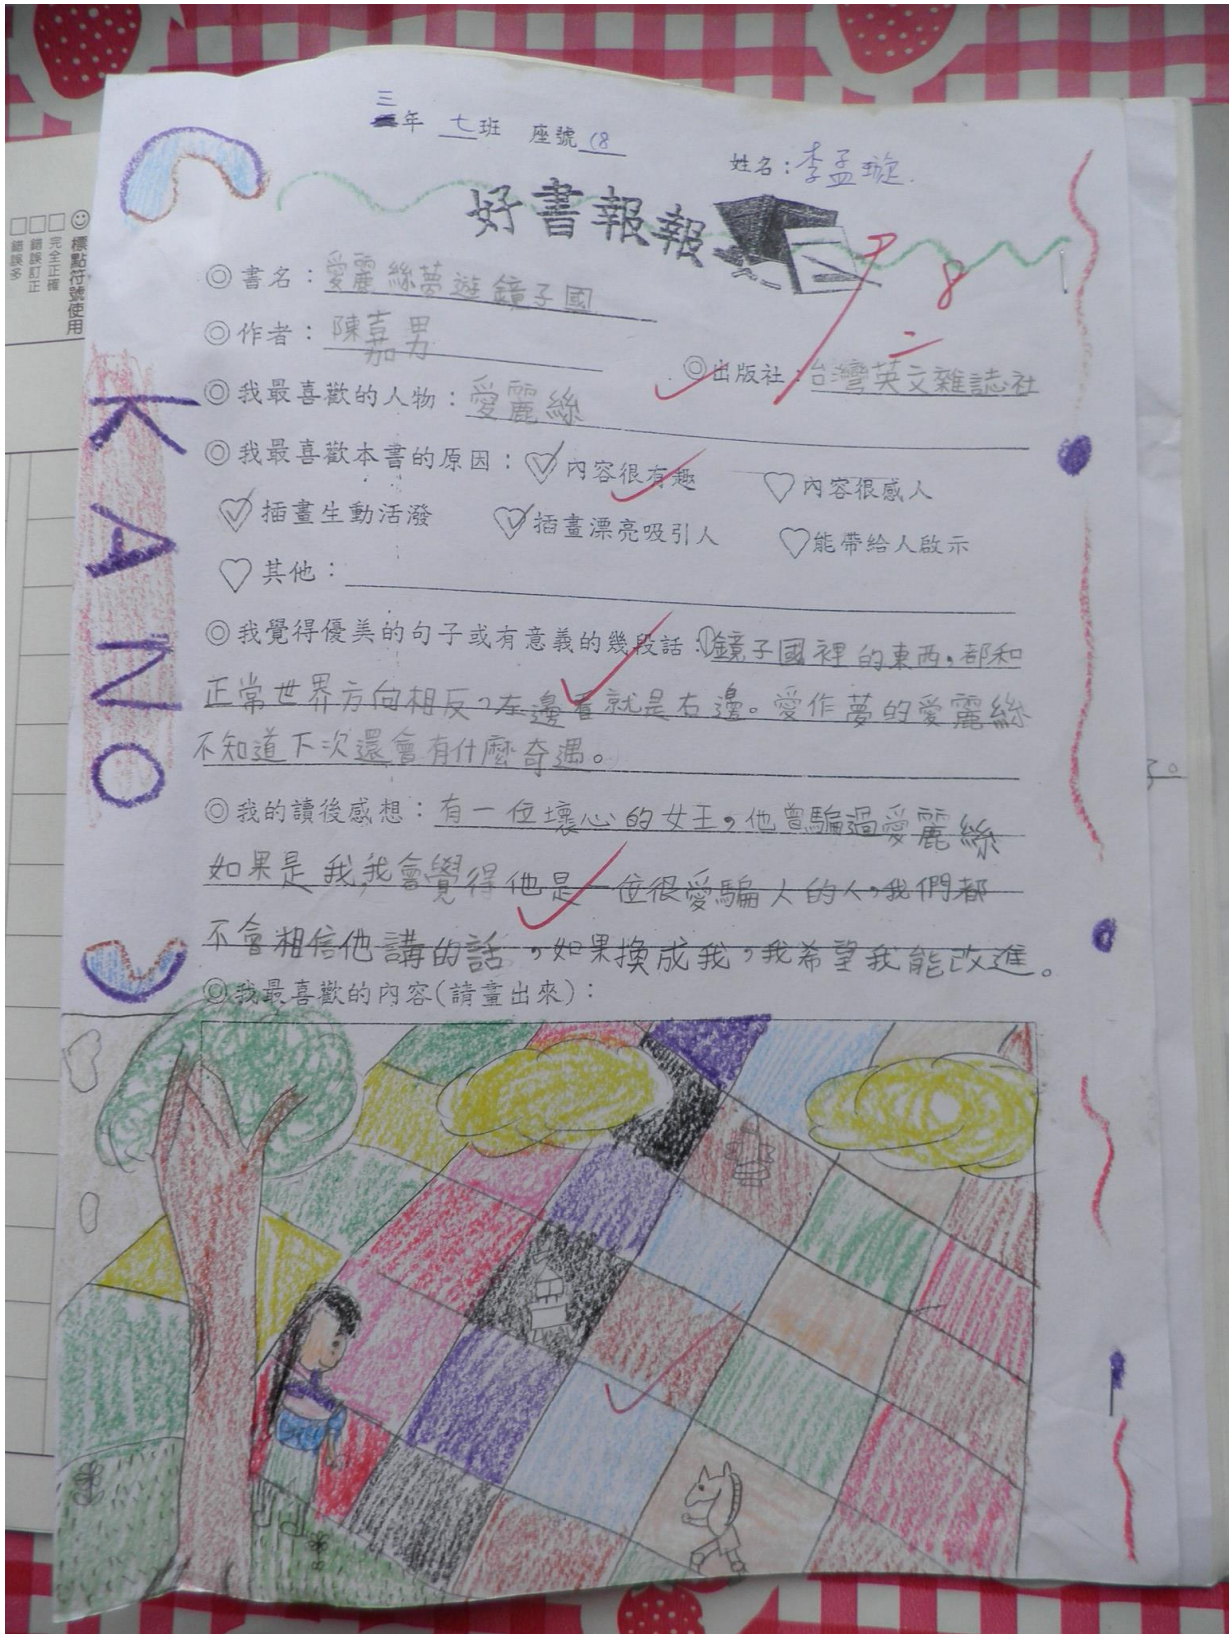 三年 七班 座號 18
姓名：李孟璇
好書報報
◎書名：愛麗絲夢遊鏡子國
◎作者：陳嘉男
◎出版社：台灣英文雜誌社
◎我最喜歡的人物：愛麗絲
◎我最喜歡本書的原因：內容很有趣 內容很感人
插畫生動活潑 插畫漂亮吸引人 能帶給人啟示
其他：
◎我覺得優美的句子或有意義的幾段話：鏡子國裡的東西，都和
正常世界方向相反，左邊看就是右邊。愛作夢的愛麗絲
不知道下次還會有什麼奇遇。
◎我的讀後感想：有一位壞心的女王，他曾騙過愛麗絲
如果是我，我會覺得他是一位很愛騙人的人，我們都
不會相信他講的話，如果換成我，我希望我能改進。
◎我最喜歡的內容(請畫出來)：
KANO
☺標點符號使用
□完全正確
□錯誤訂正
□錯誤多